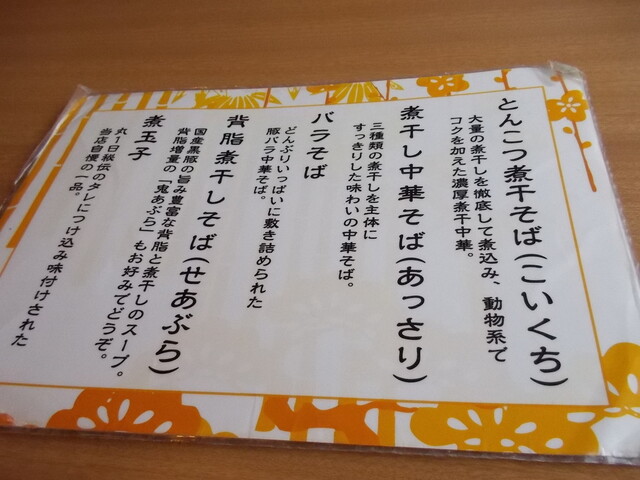 とんこつ煮干そば(こいくち)
大量の煮干しを徹底して煮込み、動物系で
コクを加えた濃厚煮干中華。
煮干し中華そば(あっさり)
三種類の煮干しを主体に
すっきりした味わいの中華そば。
バラそば
どんぶりいっぱいに敷き詰められた
豚バラ中華そば。
背脂煮干しそば(せあぶら)
国産黒豚の旨み豊富な背脂と煮干しのスープ。
背脂増量の「鬼あぶら」もお好みでどうぞ。
煮玉子
丸1日秘伝のタレにつけ込み味付けされた
当店自慢の一品。